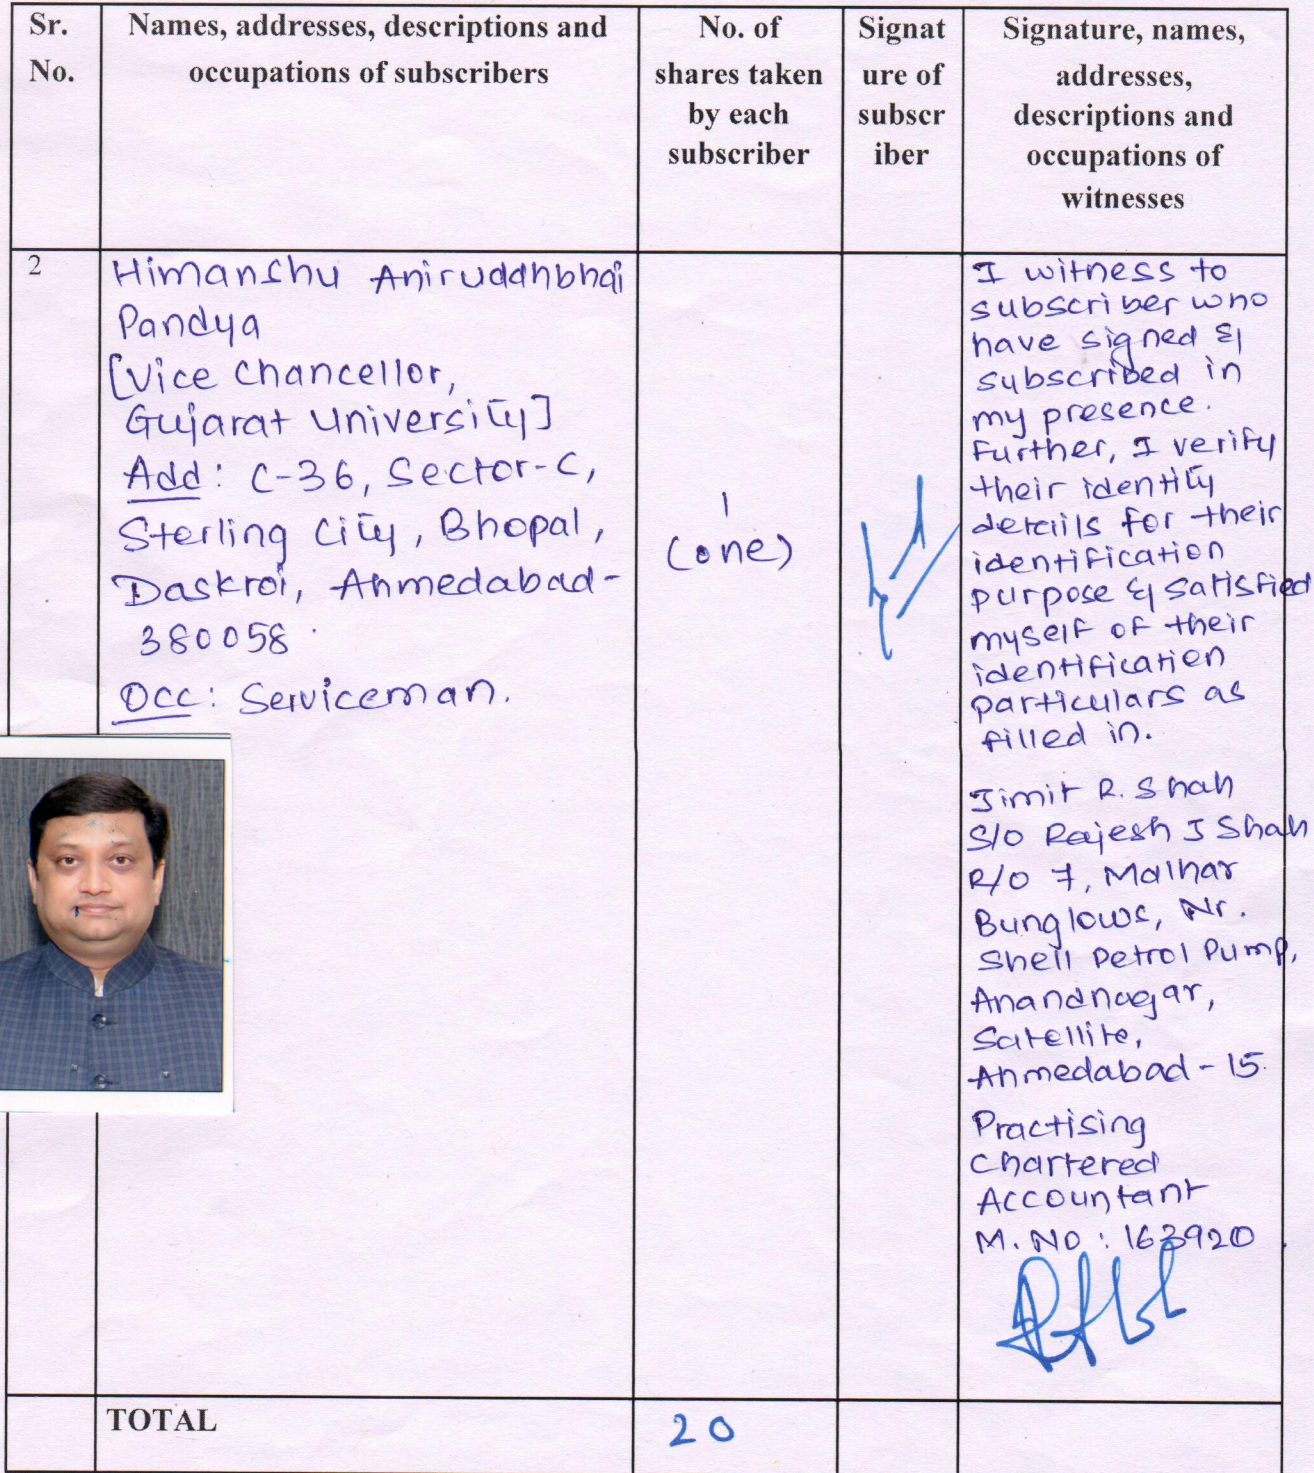 Sr.
No.
Names, addresses, descriptions and
occupations of subscribers
No. of
shares taken
by each
subscriber
Signat
ure of
subscr
iber
Signature, names,
addresses,
descriptions and
occupations of
witnesses
2
Himanshu Aniruddhbhai
Pandya
[Vice Chancellor,
Gujarat University]
Add: C-36, Sector-C,
Sterling City, Bhopal,
Daskroi, Ahmedabad-
380058.
Occ: Serviceman.
1
(one)
I witness to
subscriber who
have signed &
subscribed in
my presence.
Further, I verify
their identity
details for their
identification
purpose & satisfied
myself of their
identification
particulars as
filled in.
Jimit R. Shah
S/O Rajesh J Shah
R/O 7, Malhar
Bunglows, Nr.
Shell Petrol Pump,
Anandnagar,
Satellite,
Ahmedabad-15.
Practising
Chartered
Accountant
M. NO: 163920.
TOTAL
20